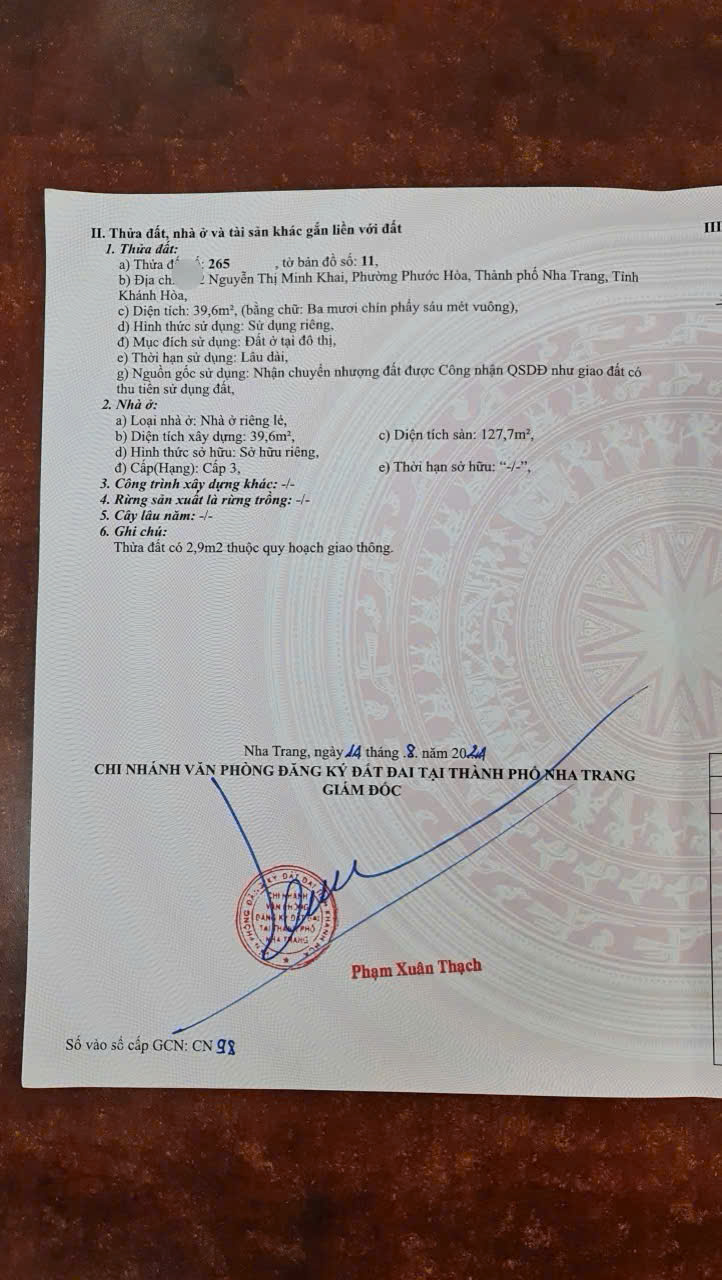 II. Thửa đất, nhà ở và tài sản khác gắn liền với đất
III
1. Thửa đất:
a) Thửa đ : 265 , tờ bản đồ số: 11,
b) Địa ch. 2 Nguyễn Thị Minh Khai, Phường Phước Hòa, Thành phố Nha Trang, Tỉnh
Khánh Hòa,
c) Diện tích: 39,6m², (bằng chữ: Ba mươi chín phẩy sáu mét vuông),
d) Hình thức sử dụng: Sử dụng riêng,
đ) Mục đích sử dụng: Đất ở tại đô thị,
e) Thời hạn sử dụng: Lâu dài,
g) Nguồn gốc sử dụng: Nhận chuyển nhượng đất được Công nhận QSDĐ như giao đất có
thu tiền sử dụng đất,
2. Nhà ở:
a) Loại nhà ở: Nhà ở riêng lẻ,
b) Diện tích xây dựng: 39,6m², c) Diện tích sàn: 127,7m²,
d) Hình thức sở hữu: Sở hữu riêng,
đ) Cấp(Hạng): Cấp 3, e) Thời hạn sở hữu: “-/-”,
3. Công trình xây dựng khác: -/-
4. Rừng sản xuất là rừng trồng: -/-
5. Cây lâu năm: -/-
6. Ghi chú:
Thửa đất có 2,9m2 thuộc quy hoạch giao thông.
Nha Trang, ngày 14 tháng .8. năm 2021
CHI NHÁNH VĂN PHÒNG ĐĂNG KÝ ĐẤT ĐAI TẠI THÀNH PHỐ NHA TRANG
GIÁM ĐỐC
CHI NHÁNH
VĂN PHÒNG
ĐĂNG KÝ ĐẤT ĐAI
TẠI THÀNH PHỐ
NHA TRANG
Phạm Xuân Thạch
Số vào sổ cấp GCN: CN 98